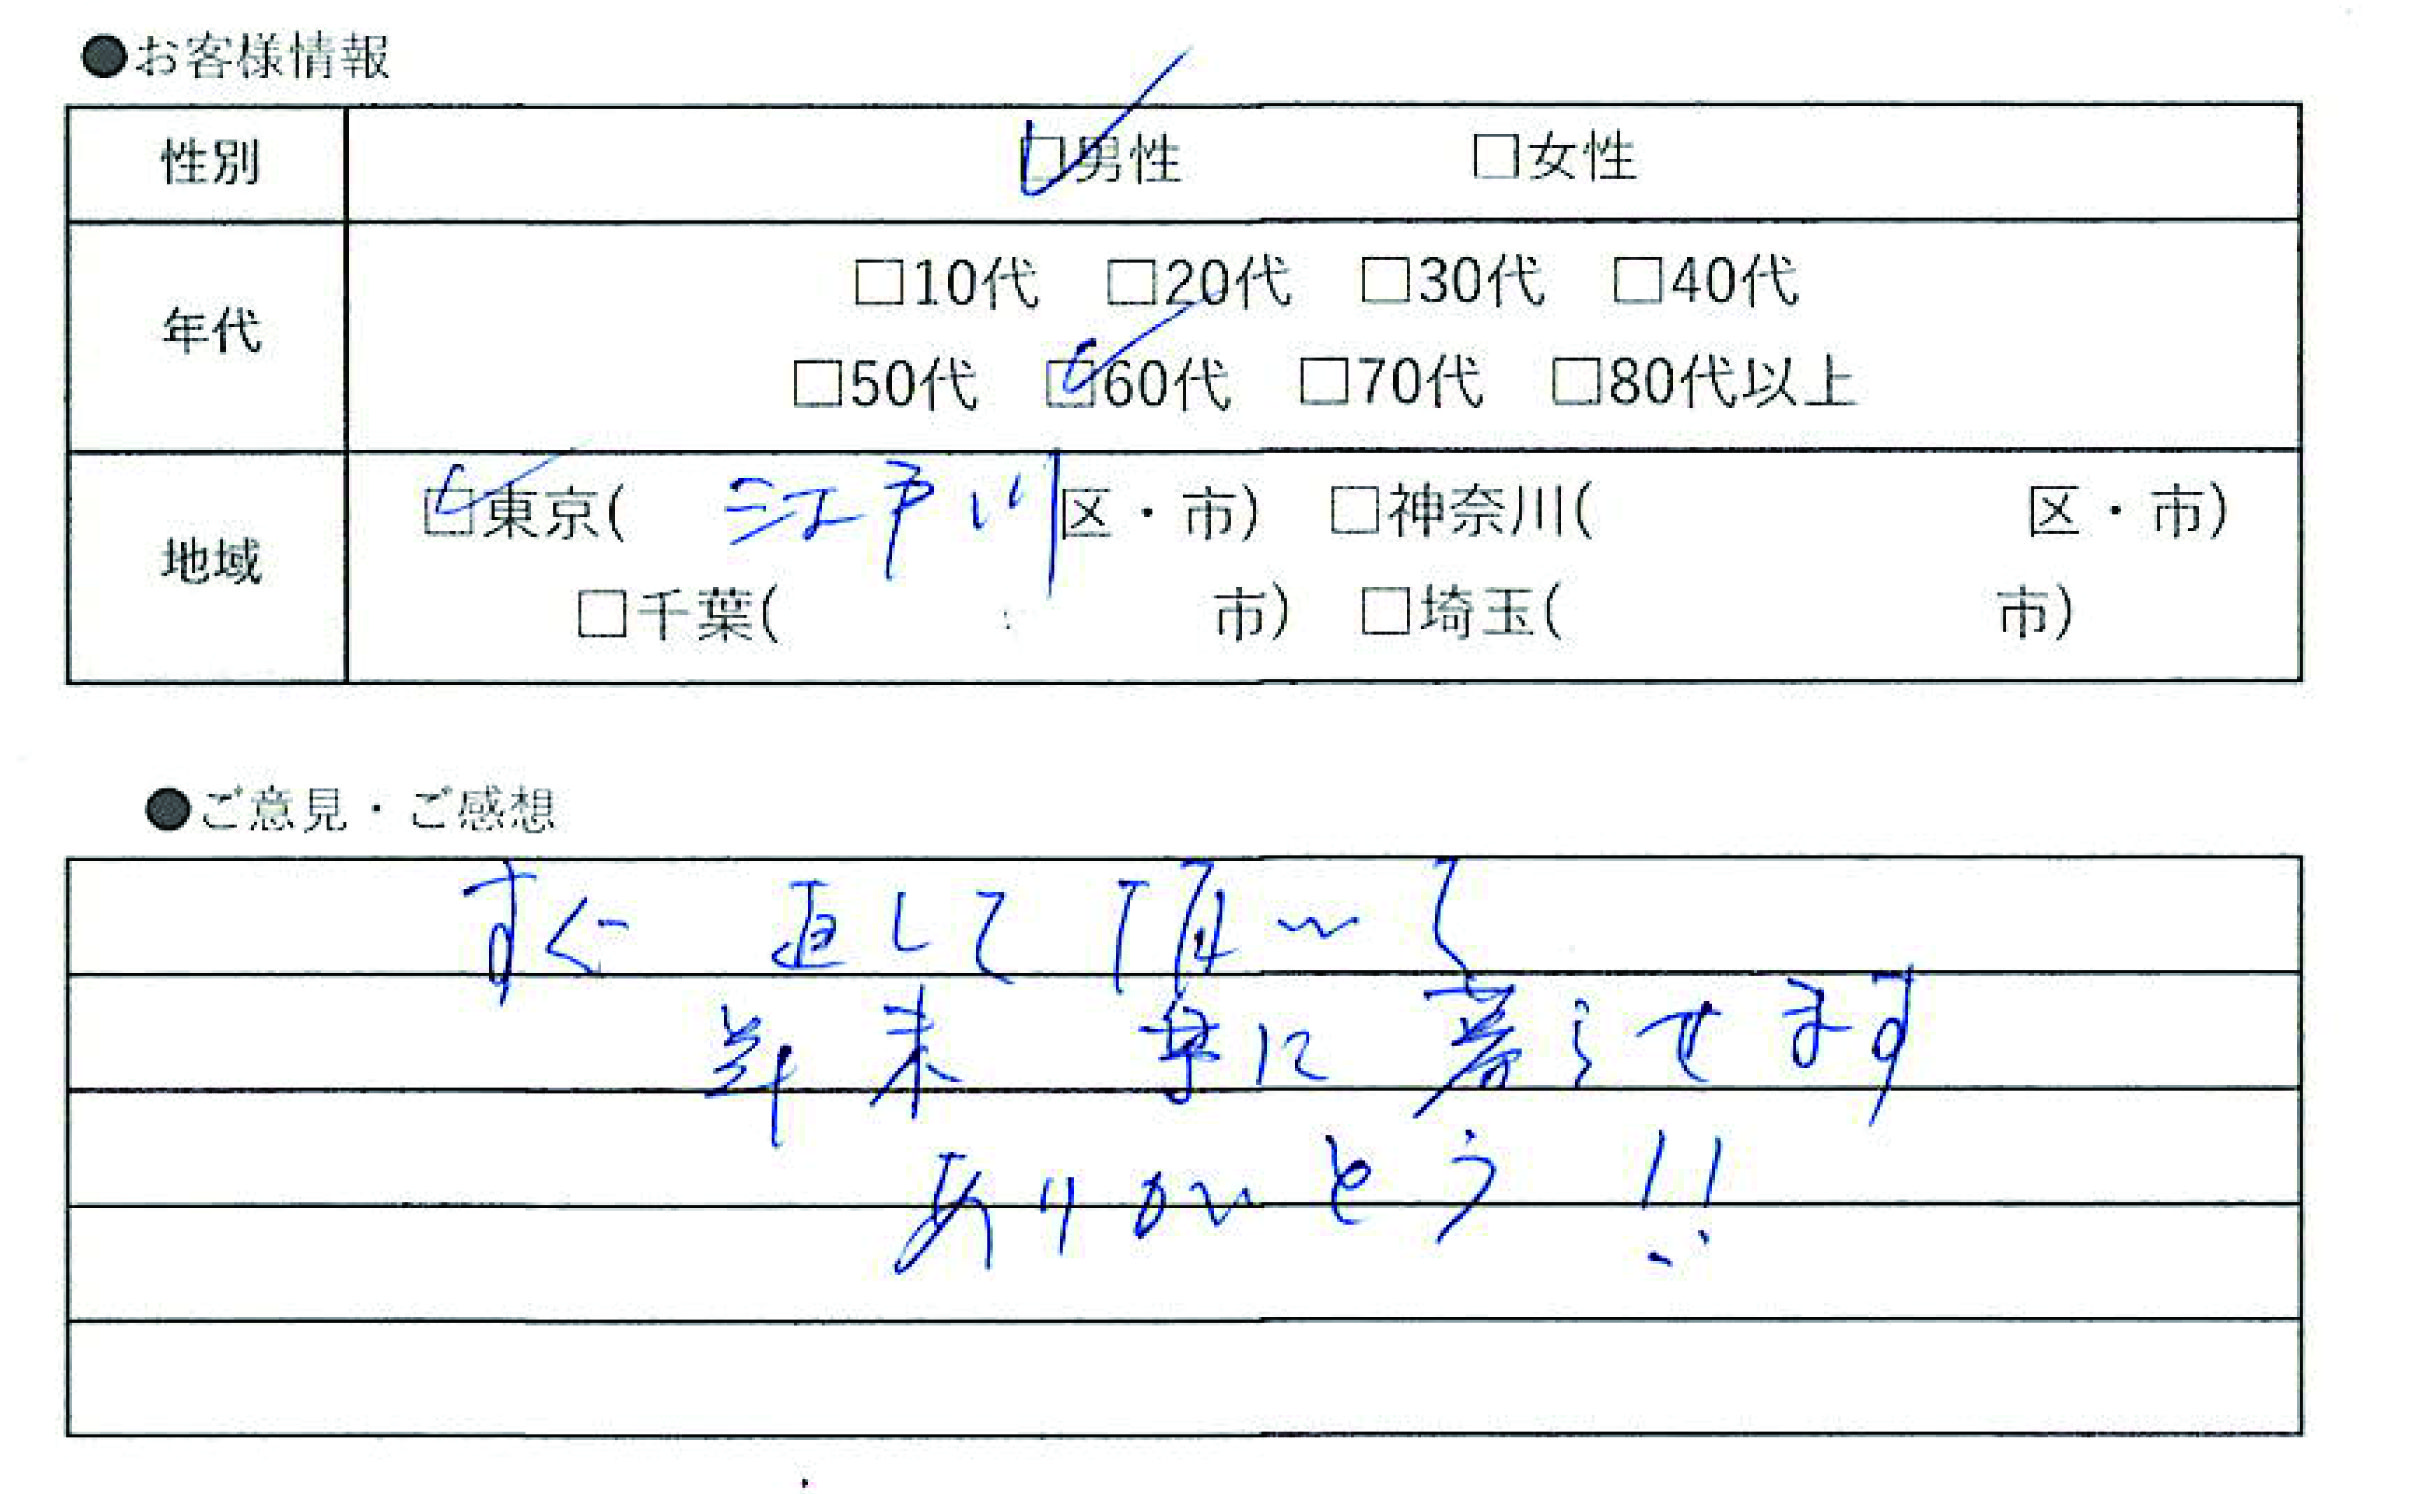 ●お客様情報
性別 ☑男性 □女性
年代 □10代 □20代 □30代 □40代
□50代 ☑60代 □70代 □80代以上
地域 ☑東京( 江戸川 区・市) □神奈川( 区・市)
□千葉( 市) □埼玉( 市)
●ご意見・ご感想
すぐ 直して 頂いて
年末 楽に 暮らせます
ありがとう !!